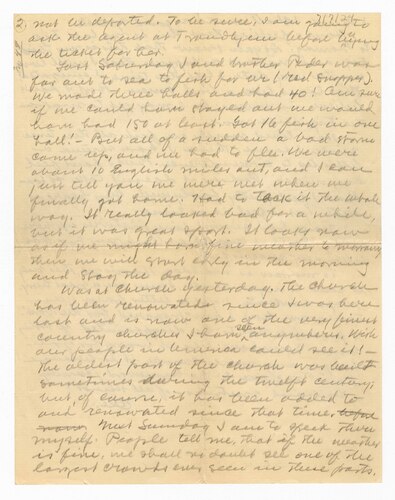 2. not be deported. To be sure, I am going to
ask the agent at Trondhjem before buying
the ticket for her.
Last Saturday I and brother Peder was
far out to sea to fish for uer (Red Snapper).
We made three halls and had 40! Am sure
if we could have stayed out we would
have had 150 at least. Got 16 fish in one
hall! - But all of a sudden a bad storm
came up, and we had to flee. We were
about 10 English miles out, and I can
just tell you we were wet when we
finally got home. Had to tack it the whole
way. It really looked bad for a while,
but it was great sport. It looks now
as if we might have fine weather to morrow,
then we will start early in the morning
and stay the day.
Was at church yesterday. The church
has been renovated since I was here
last and is now one of the very finest
country churches I have seen anywhere. Wish
our people in America could see it! -
The oldest part of the church was built
sometimes during the twelft century,
but, of course, it has been added to
and renovated since that time. before
Next Sunday I am to speak there
myself. People tell me, that if the weather
is fine, we shall no doubt see one of the
largest crowds ever seen in these parts.